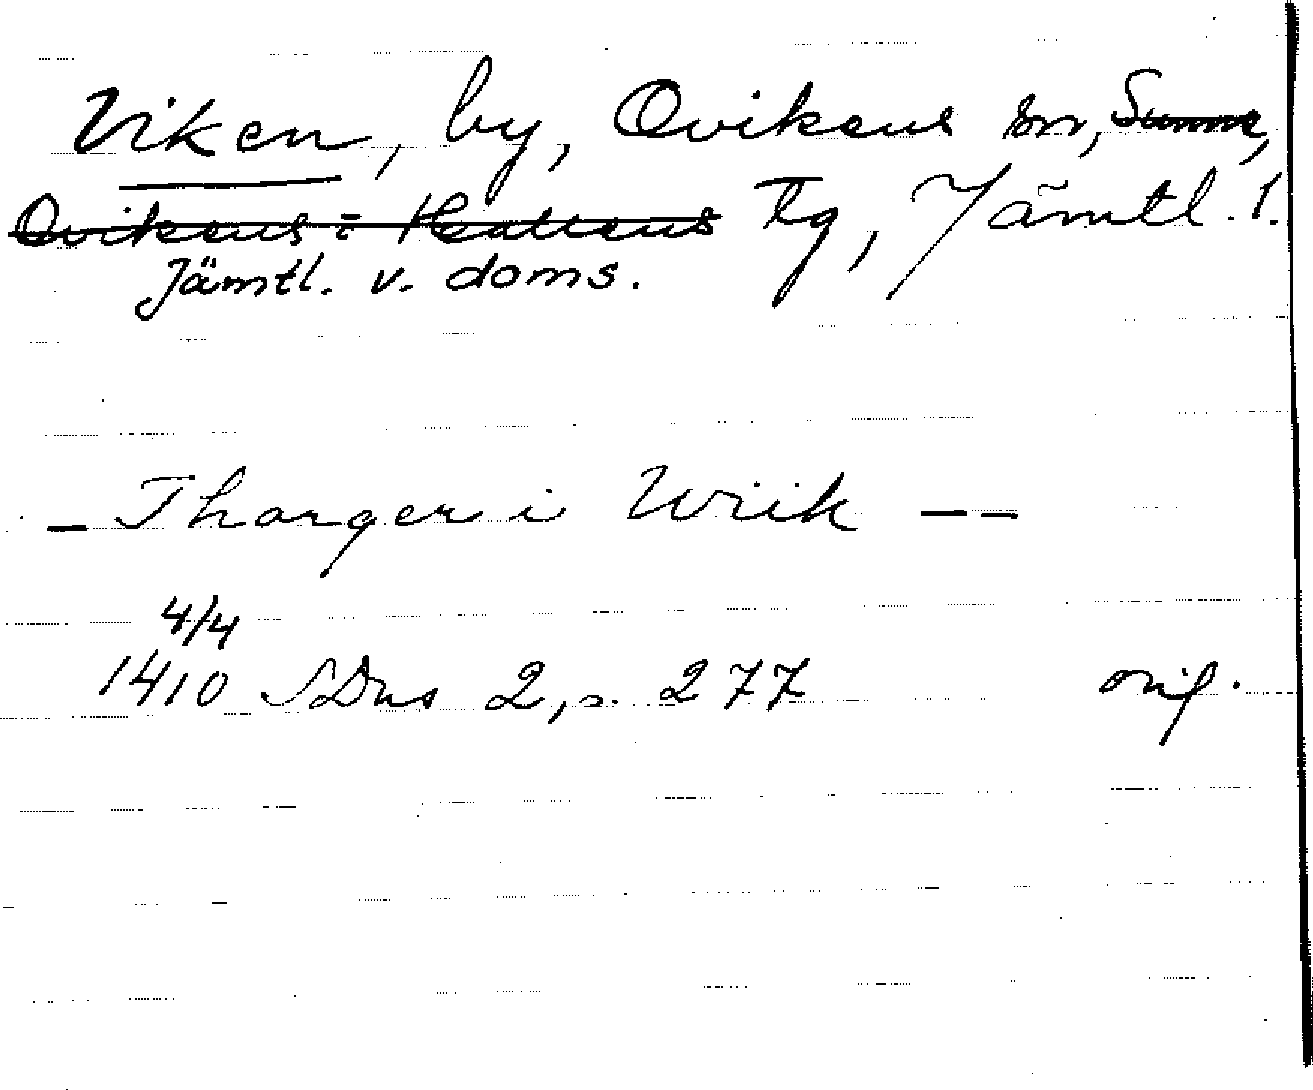 Viken, by, Ovikens sn, Sunne,
Ovikens o Hallens Tg, Jämtl. l.
Jämtl. v. doms.
- Thorger i Wiik - -
4/4
1410 SDns 2, s. 277 orig.